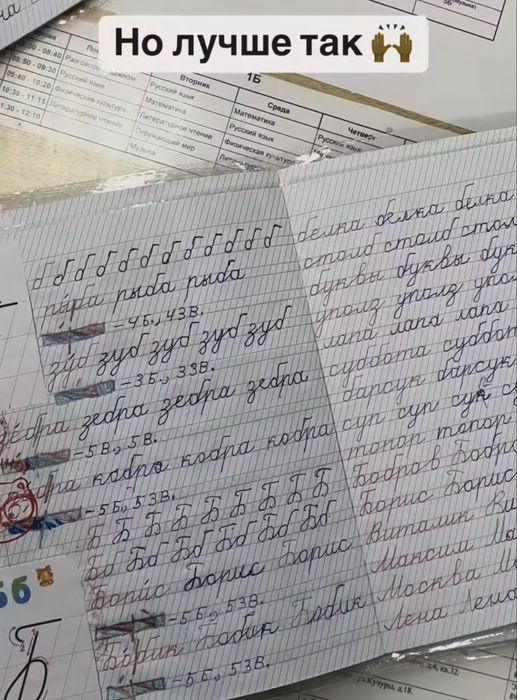 Но лучше так 🙌🏾
(Музыка)
5Б
1Б
Вторник
Среда
Четверг
08:50 - 09:30 Русский язык
Русский язык
09:40 - 10:20 Физическая культура
Математика
Математика
10:35 - 11:15 Литературное чтение
Литературное чтение
Русский язык
11:30 - 12:10
Окружающий мир
Физическая культура
Музыка
б б б б б б б б б б б б
рыба рыба рыба
– 4Б., 4З В.
зуб зуб зуб зуб зуб
– 3Б., 3З В.
зебра зебра зебра зебра
– 5В., 5В.
кобра кобра кобра кобра
– 5Б., 5З В.
Б Б Б Б Б Б Б Б
Бб Бб Бб Бб Бб Бб Бб
Борис Борис Борис
– 5Б., 5З В.
Бобик Бобик Бобик
– 5Б., 5З В.
Бб
белка белка белка
столб столб стол
буквы буквы бук
уполз уполз упол
лапа лапа лапа
суббота суббот
барсук барсук
суп суп суп су
топор топор
Бобров Бобро
Борис Борис
Виталик Ви
Максим Ма
Москва М
Лена Лена
кв.32
ул.Кучуры, д.18.